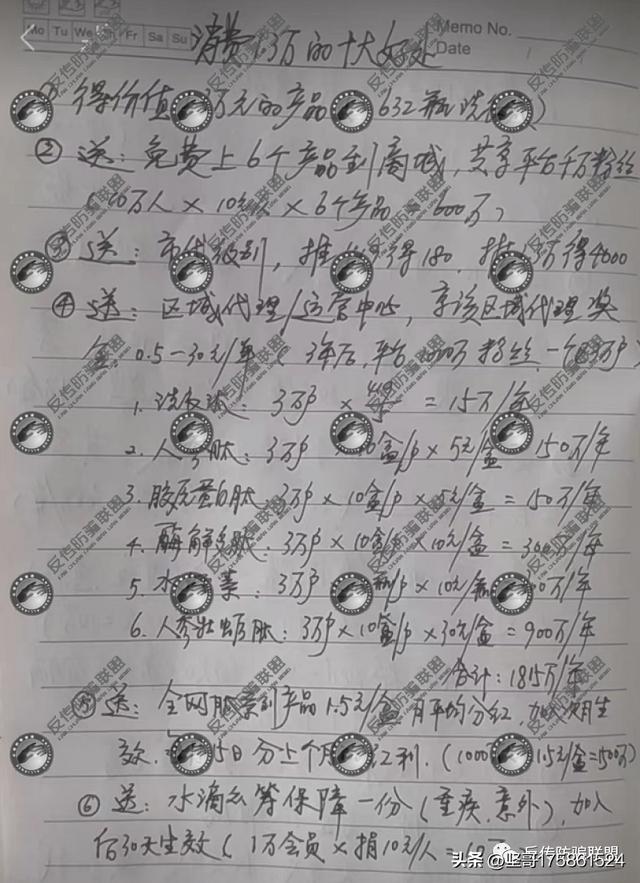 Mo Tu We Th Fr Sa Su
Memo No.
Date
消费1.3万的十大好处
① 得价值 万元的产品 632瓶洗
② 送：免费上6个产品到商城，共享平台千万粉丝
万人×10元 ×6个产品 600万）
③ 送：市代级别，推 得180 推 得4000
④ 送：区域代理/运营中心，享该区域代理奖
金 0.5一30元/单（ 3年后，平台 万粉丝，一个区3万户）
1. 洗 ：3万户 × = 15万/年
2. 人参肽：3万户 10盒/户×5元/盒 150万/年
3. 胶原蛋白肽：3万户×10盒/户×5元/盒=150万/年
4. 酶解 肽：3万户×10盒/户×10元/盒=300万/年
5. 水 素：3万户 /户×10元/瓶 万/年
6. 人参牡蛎肽：3万户×10盒/户×30元/盒=900万/年
合计：1815万/年
⑤ 送：全网肽系列产品1.5元/盒月平均分红，加 次月生
效． 15日分上个月红利．（1000 1.5元/盒=1500万）
⑥ 送：水滴公筹保障一份（重疾、意外），加入
后30天生效（1万会员×捐10元/人=10万
反传防骗联盟
头条 @坚哥175861524